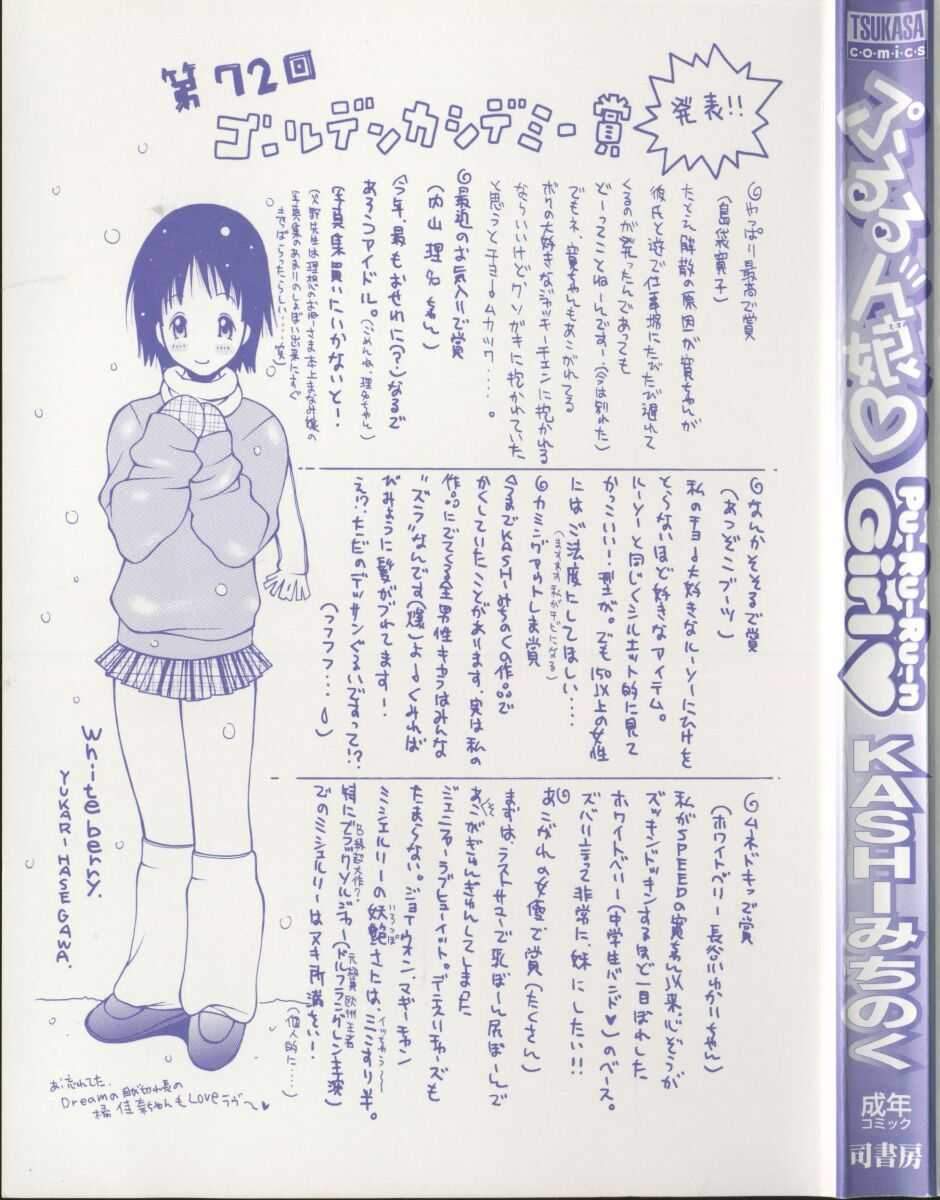 第72回
ゴールデンカシデミー賞
発表!!
やっぱり最高で賞
(島袋寛子)
たとえ解散の原因が寛ちゃんが
彼氏と遊んで仕事場にたびたび遅れて
くるのが発ったんであっても
どーってことねーんです…(今は別れた)
でもネ、寛ちゃんもあこがれてる
ボクの大好きなジャッキーチェンに抱かれる
ならいいけどクソガキに抱かれていた
と思うとチョームカツク・・・・。
最近のお気入りで賞
(内山理名ちゃん)
今年、最もおせわに(?)なるで
あろうアイドル。(ごめんね、理名ちゃん)
写真集買いにいかないと!
なんかそそるで賞
(あつぞこブーツ)
私のチョー大好きなルーソーにひけを
とらないほど好きなアイテム。
ルーソーと同じくシルエット的に見て
かっこいい!型が。でも150以上の女性
にはご法度としてほしい・・・・
カミングアウトしま賞
今までKASHIみちのくの作品で
かくしていたことがあります、実は私の
作品にでてくる全男性キャラはみんな
"ズラ"なんです(爆)よーくみれば
びみように髪がづれてます!
え!?ただのデッサンぐるいですって!?
(ウフフフ・・・・)
ムネドキッで賞
(ホワイトベリー 長谷川ゆかりちゃん)
私がSPEEDの寛ちゃん以来、心ぞうが
ズッキンドッキンするほど一目ぼれした
ホワイトベリー(中学生バンド♥)のベース
ズバリ言って非常に、妹にしたい!!
あこがれの女優で賞(たくさん)
まずは、ラストサマーで乳ぼーん尻ぼーんで
あごがぎゅんぎゅんしてしまった
ジェニファーラブヒューイット。デニスリチャーズも
たまらない。ジョイウォン、マギーチャン
ミシェルリーの妖艶さたは、ミミずり半。
特にブラックソルジャー(ドルフラングレン主演)
でのミシェルリーはヌキ所満さい!
(個人的に・・・・)
Whiteberry.
YUKARI・HASEGAWA.
お忘れてた、
Dreamの
橘佳奈ちゃんもLoveラブ〜♥
TSUKASA
c・o・m・i・c・s
ぷるるん娘♡
PU-RU-RU-n
Girl♡
KASHIみちのく
成年
コミック
司書房